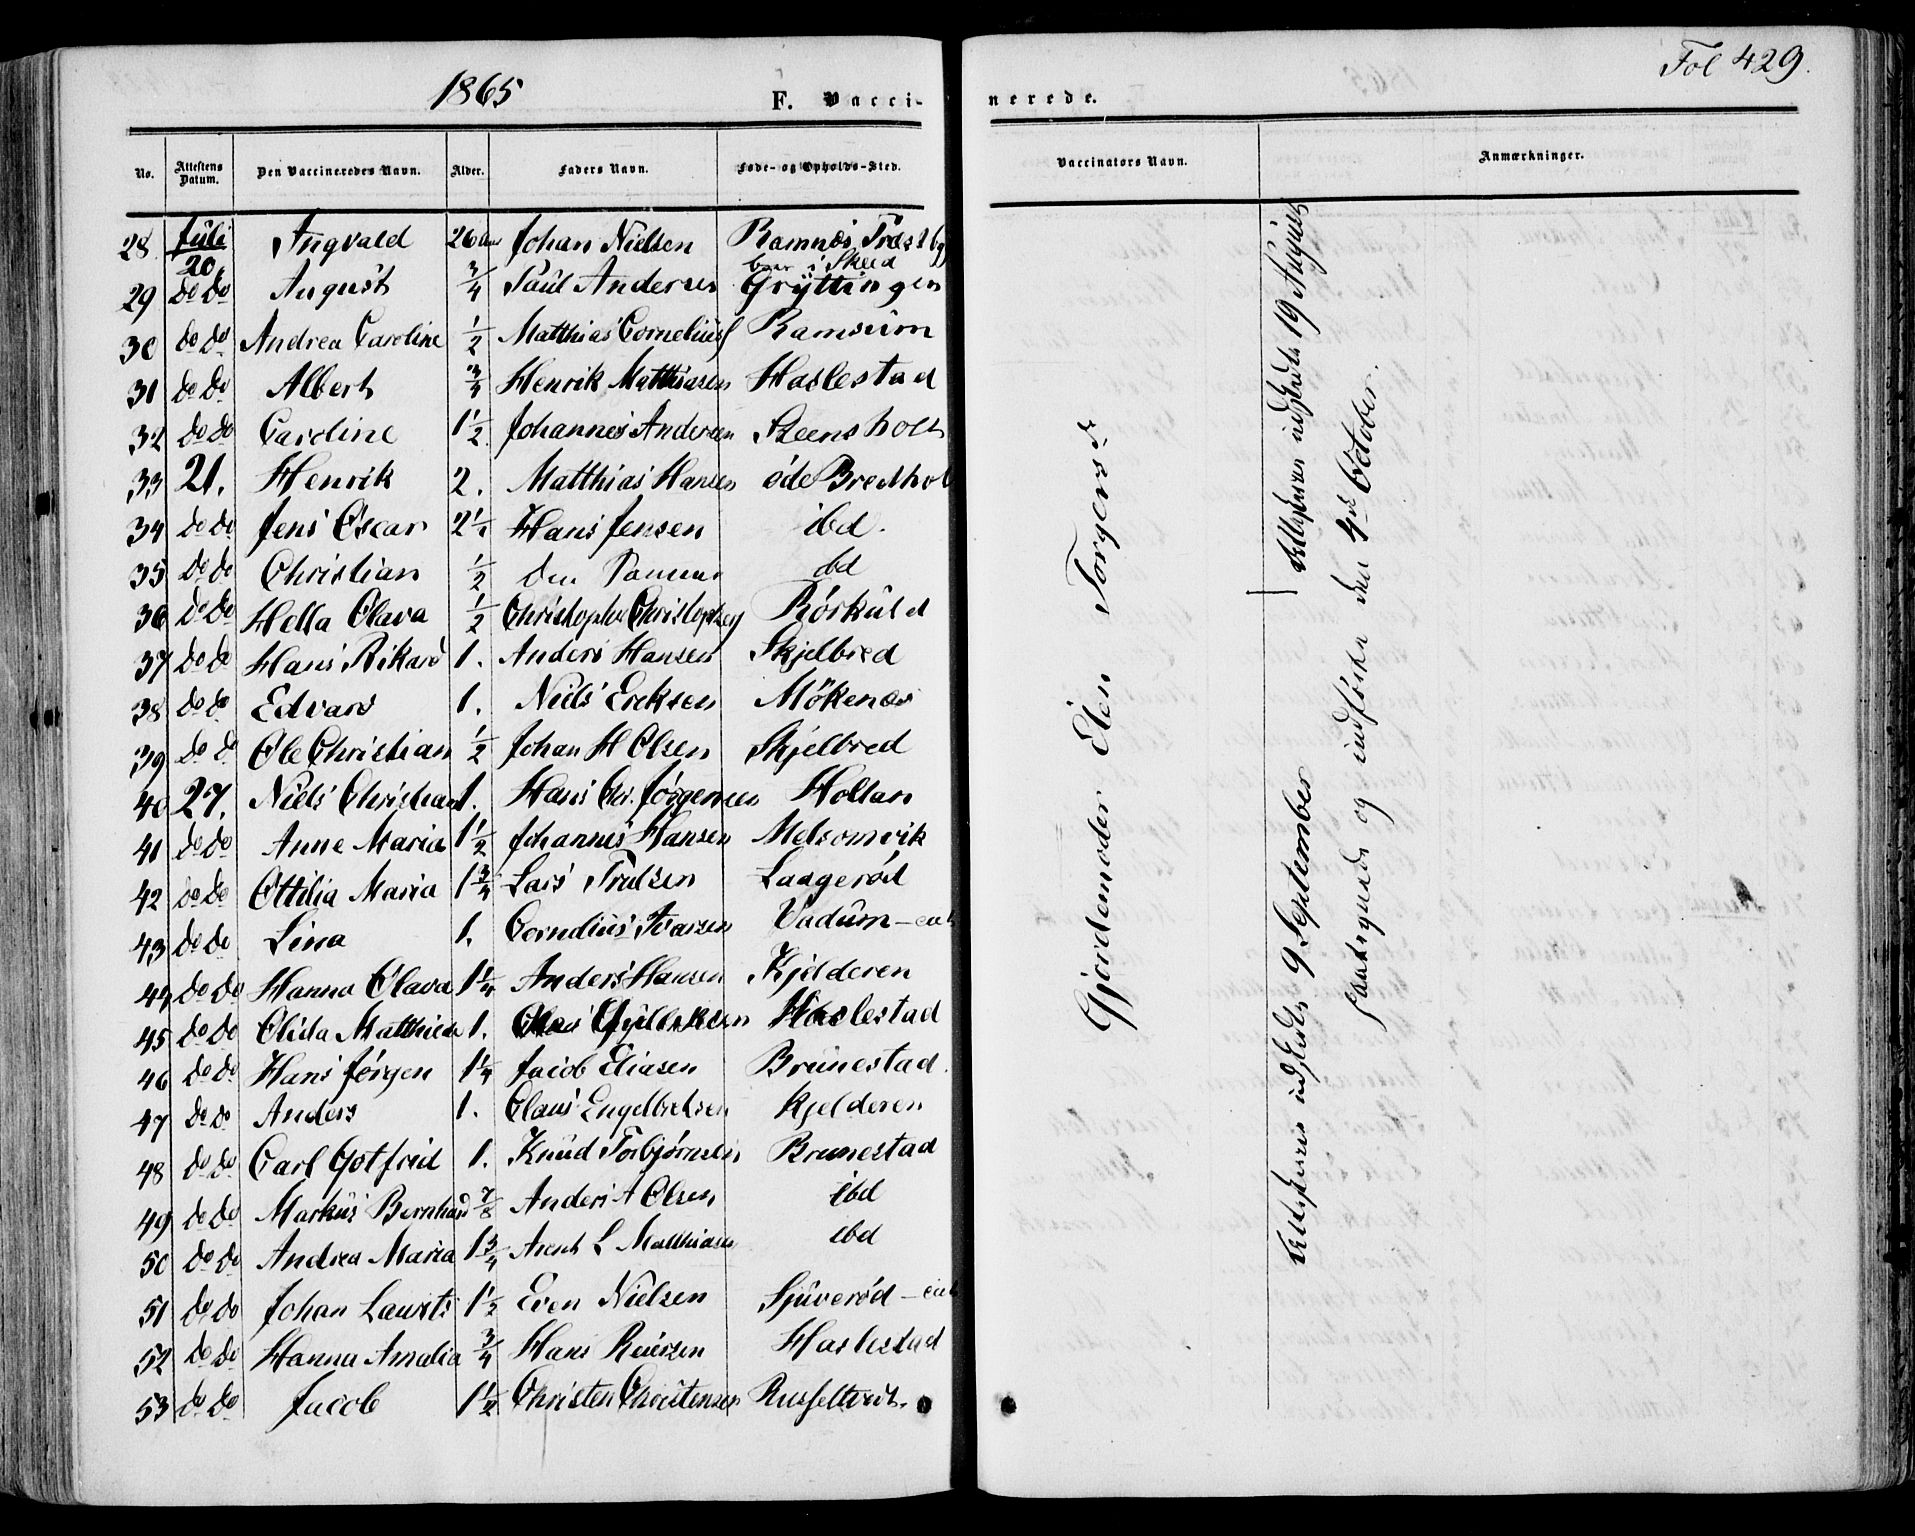 1865
F. Vacci-
No. Attestens Datum. Den Vaccineredes Navn. Alder. Faders Navn. Føde- og Opholds-Sted.
28 Juli 20 Ingvald 26 Johan Nielsen Ramnæs
boer i Skeed
29 do do August 3/4 Paul Andersen Gryttingen
30 do do Andrea Caroline 1/2 Matthias Cornelius Ramsum
31 do do Albert 3/4 Henrik Matthiasen Haslestad
32 do do Caroline 1 1/2 Johannes Andersen Steensholt
33 21. Henrik 2. Matthias Hansen øde Bredhol
34 do do Jens Oscar 2 1/4 Hans Jensen ibd.
35 do do Christian 1/2 den Samme ibd
36 do do Hella Olava 1/2 Christopher Rørkuld
37 do do Hans Rikard 1. Anders Hansen Skjelbred
38 do do Edvard 1. Niels Eriksen Møkenæs
39 do do Ole Christian 1/2 Johan H Olsen Skjelbred
40 27. Niels Christian 1. Hans Chr. Jørgensen Holtan
41 do do Anne Maria 1 1/2 Johannes Hansen Melsomvik
42 do do Ottilia Maria 1 3/4 Lars Trulsen Laagerød
43 do do Lina 1. Cornelius Ivarsen Vadum
44 do do Hanna Olava 1 1/4 Anders Hansen Kjelderen
45 do do Elida Matthiea 1. Haslestad
46 do do Hans Jørgen 1 1/4 Jacob Eliasen Brunestad.
47 do do Anders 1. Claus Engelbretsen Kjelderen
48 do do Carl Gotfried 1. Knud Torbjørnsen Brunestad
49 do do Markus Bernhard 7/8 Anders A Olsen ibd
50 do do Andrea Maria 1 3/4 Arent L Matthiasen ibd
51 do do Johan Laurits 1 1/2 Even Nielsen Sjuverød
52 do do Hanna Amalia 3/4 Hans Reiersen Haslestad
53 do do Jacob 1 1/2 Christen Christensen
Fol 429.
nerede.
Vaccinators Navn. Anmærkninger.
Gjordemoder Elen Torgersd
Attesterne indsendte 9 September
Attesterne indsendte 19 August
og indførte den 4de October.